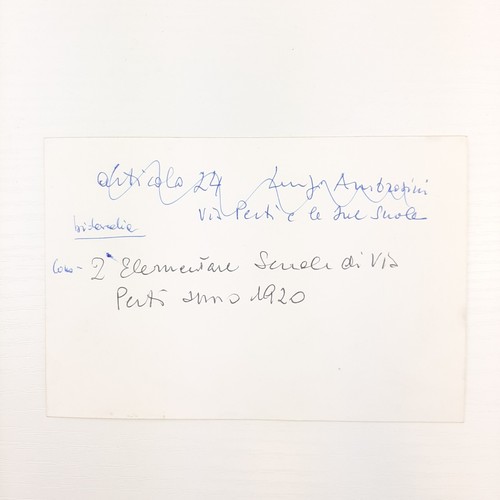 articolo 24 Luigi Ambrosini
Via Perti e le sue Scuole
2ª Elementare Scuole di Via
Perti anno 1920